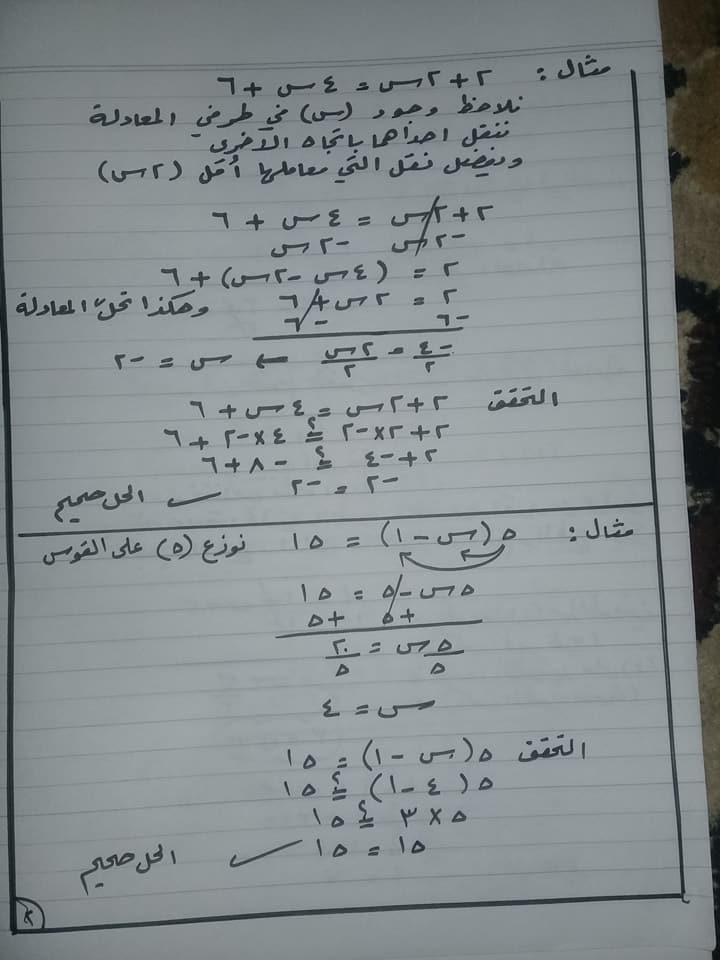 مثال : ٢ + ٢س = ٤س + ٦
نلاحظ وجود (س) في طرفي المعادلة
ننقل احداهما باتجاه الأخرى
ويفضل نقل التي معاملها أقل (٢س)
٢ + ٢س = ٤س + ٦
-٢س -٢س
٢ = (٤س - ٢س) + ٦
٢ = ٢س + ٦ وهكذا تحل المعادلة
-٦ -٦
-٤/٢ = ٢س/٢ ← س = -٢
التحقق ٢ + ٢س = ٤س + ٦
٢ + ٢×-٢ ≟ ٤×-٢ + ٦
٢ + -٤ ≟ -٨ + ٦
-٢ = -٢ ✓ الحل صحيح
مثال : ٥ (س - ١) = ١٥ نوزع (٥) على القوس
٥س - ٥ = ١٥
+٥ +٥
٥س/٥ = ٢٠/٥
س = ٤
التحقق ٥ (س - ١) = ١٥
٥ (٤ - ١) ≟ ١٥
٥ × ٣ ≟ ١٥
١٥ = ١٥ ✓ الحل صحيح